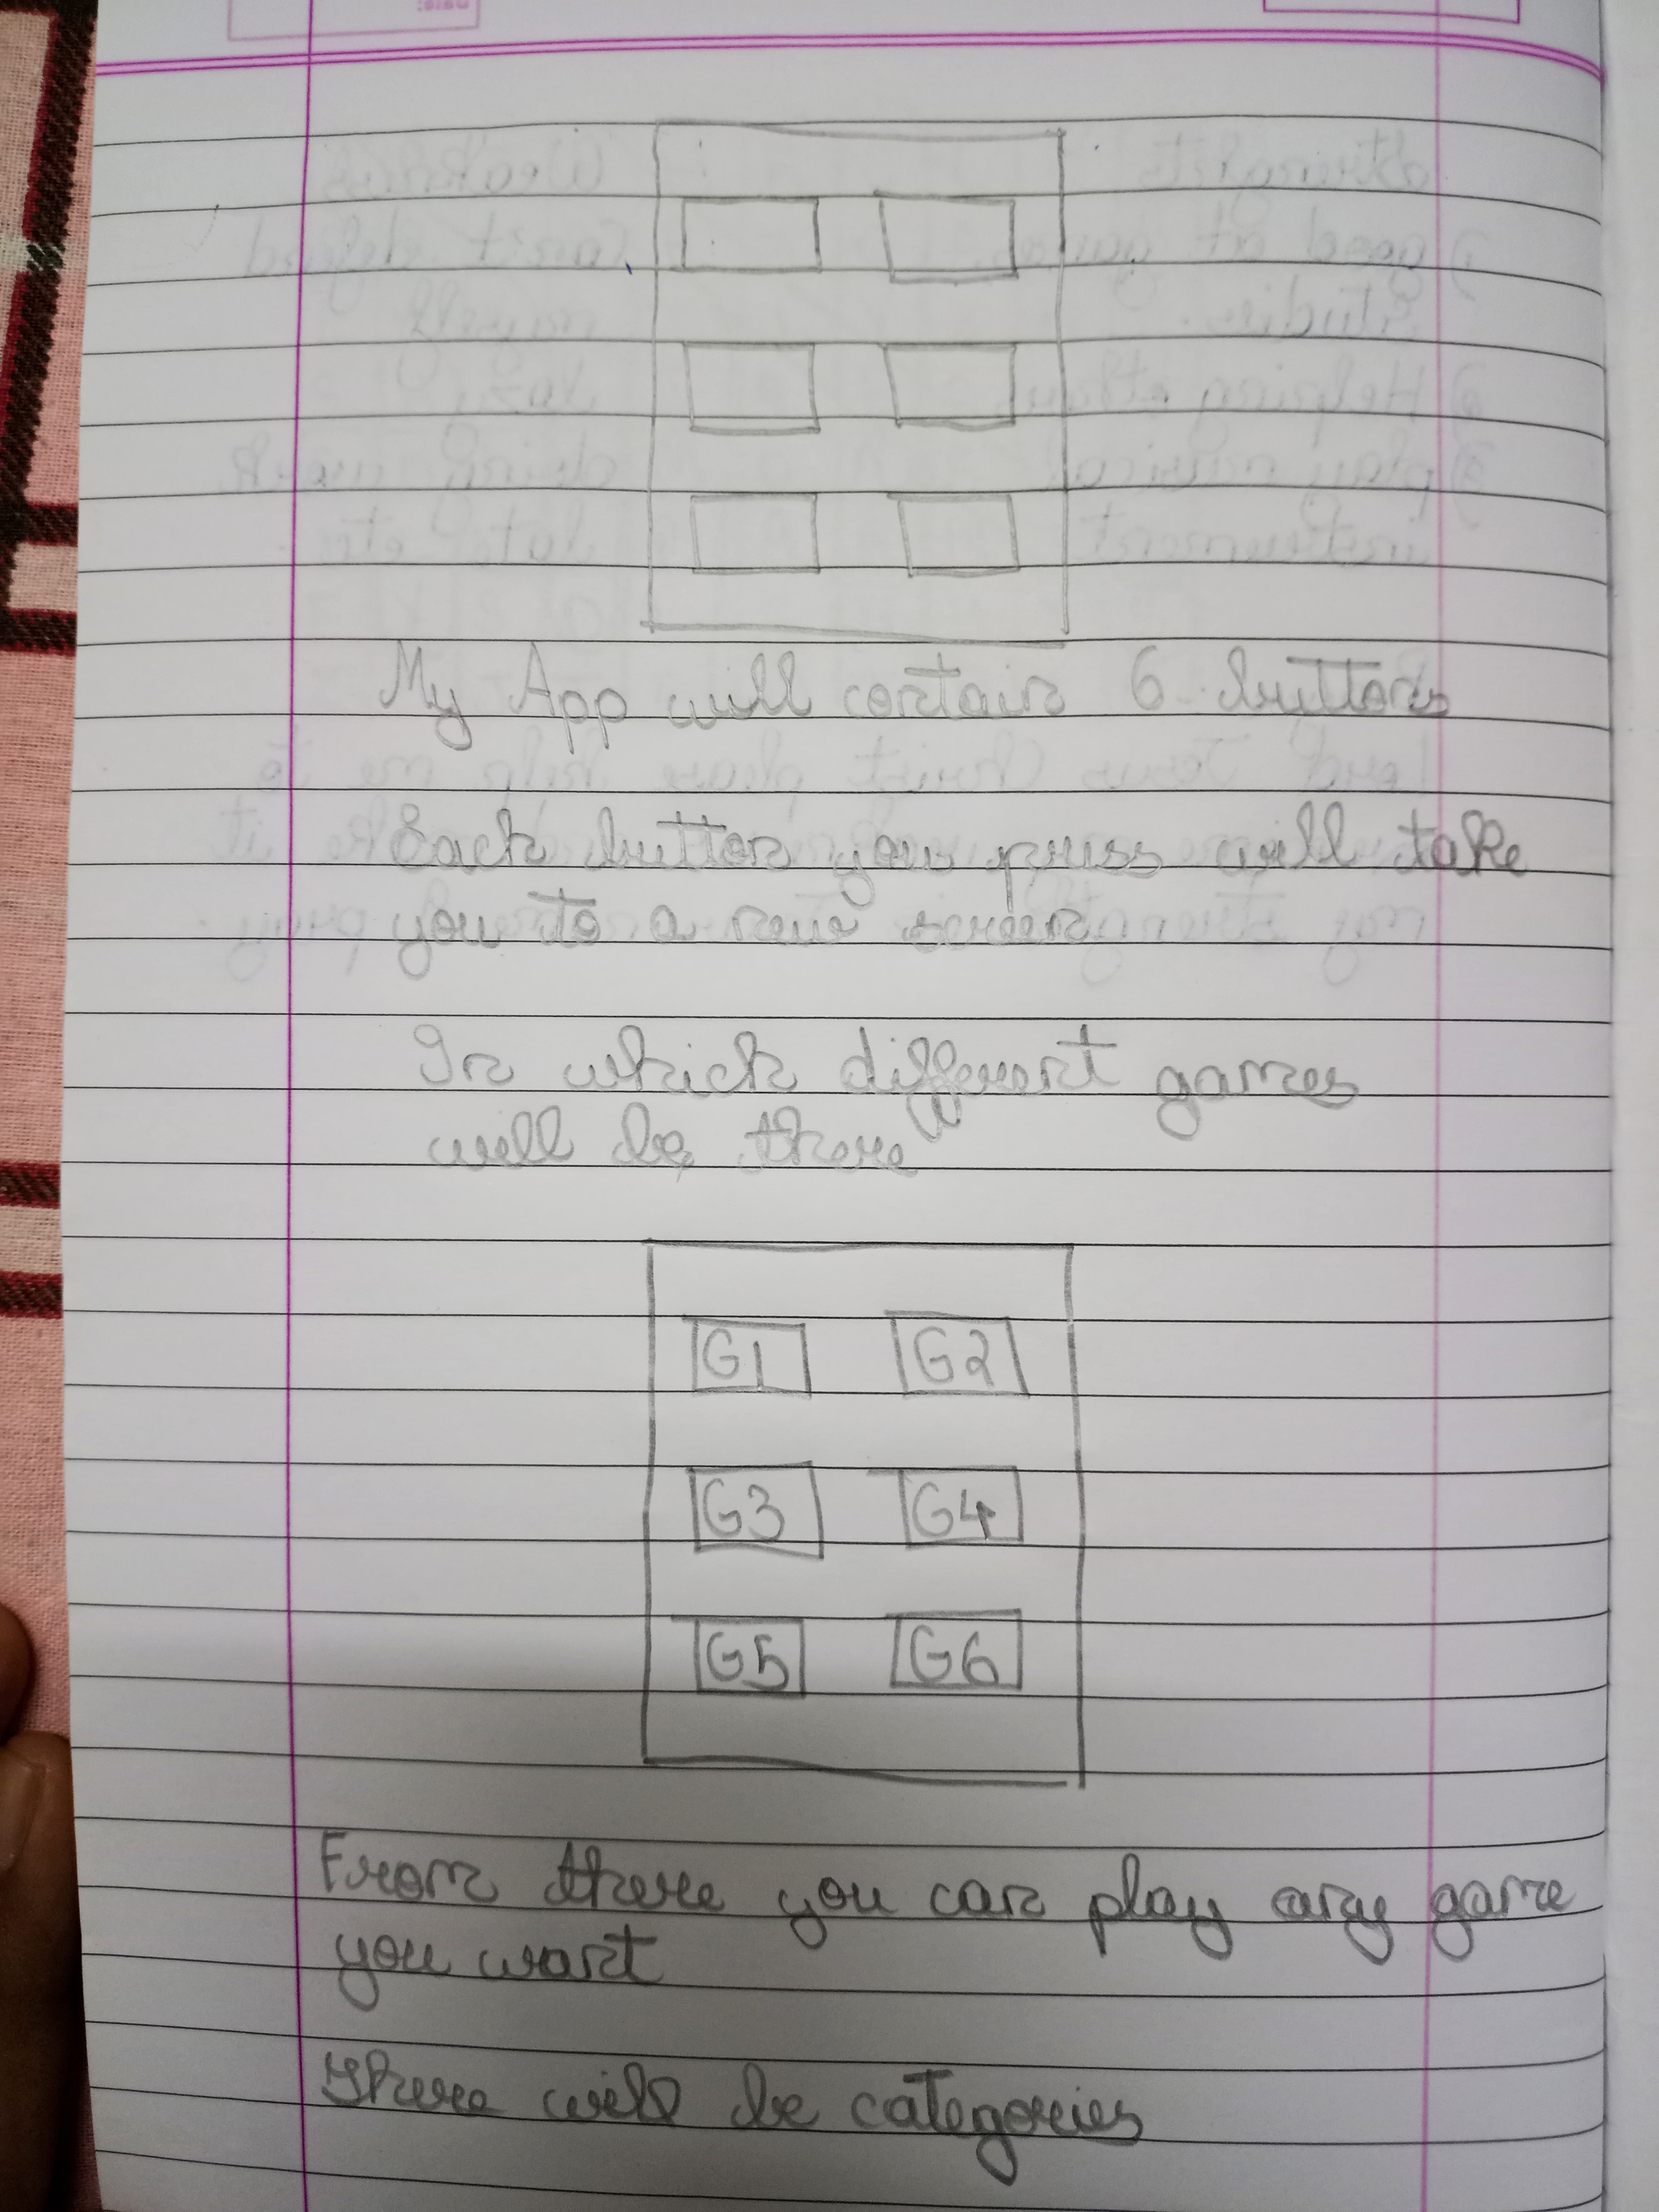 My App will contain 6 buttons
Each button you press will take
you to a new screen
In which different games
will be there
G1 G2
G3 G4
G5 G6
From there you can play any game
you want
There will be categories